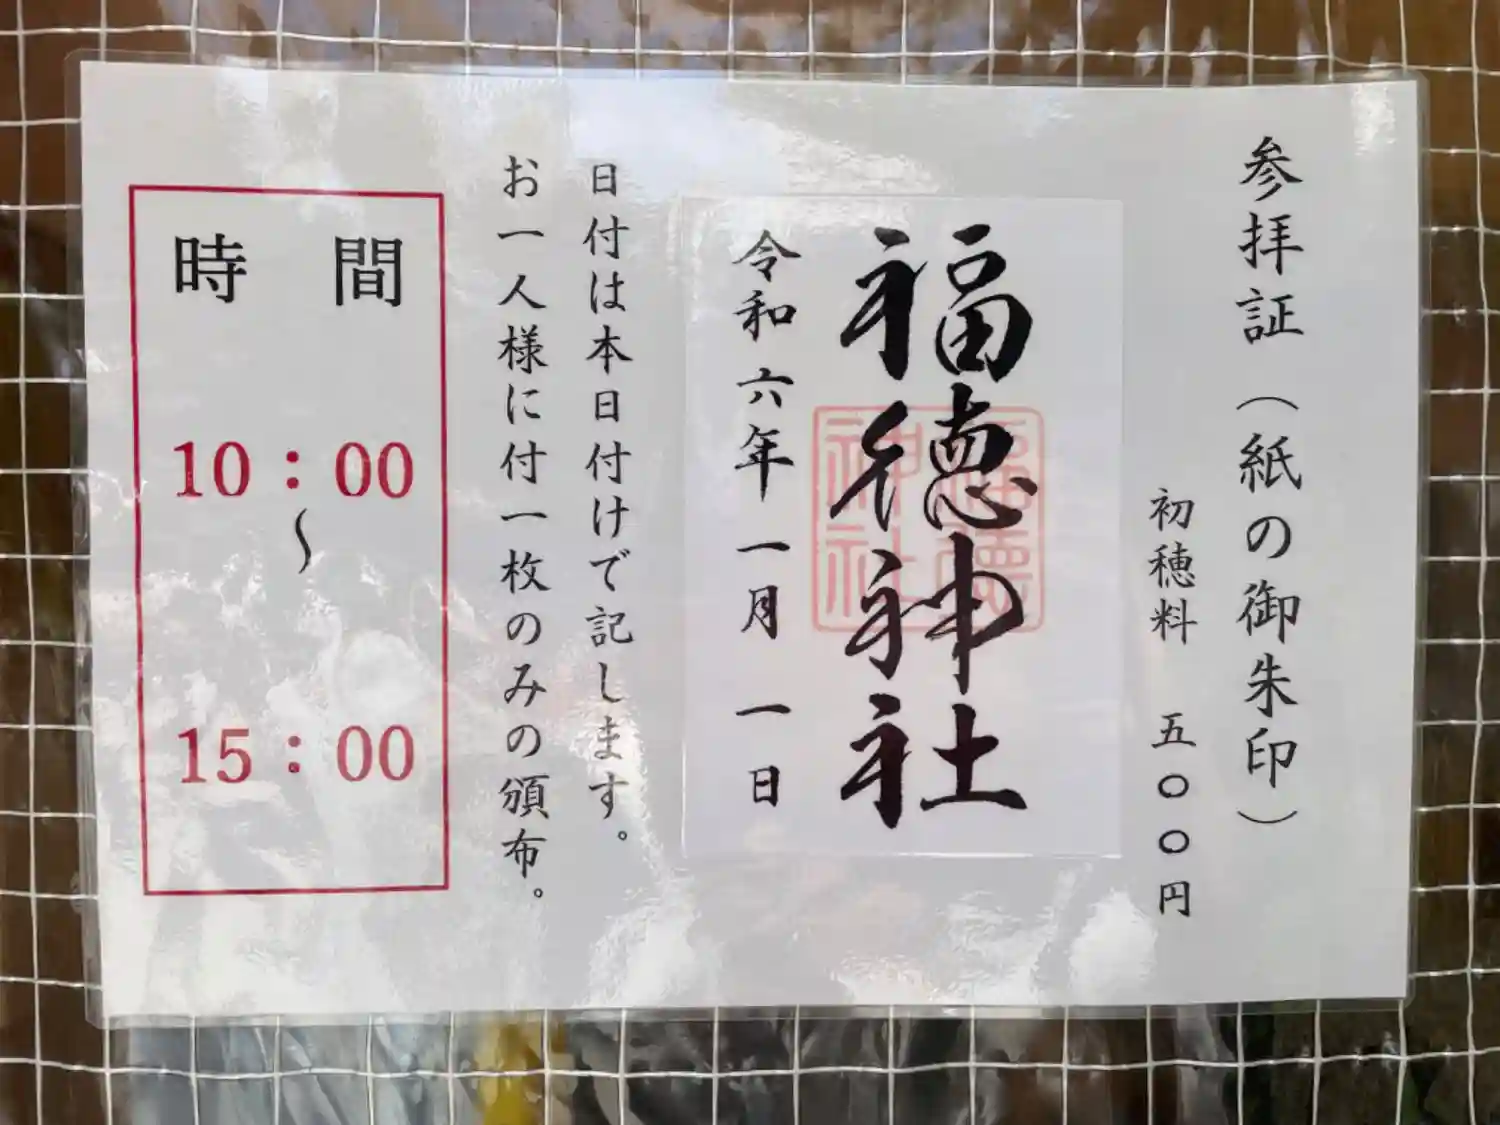 参拝証（紙の御朱印）
初穂料　五〇〇円
福徳神社
福徳
神社
令和六年一月一日
日付は本日付けで記します。
お一人様に付一枚のみの頒布。
時間
10：00
～
15：00